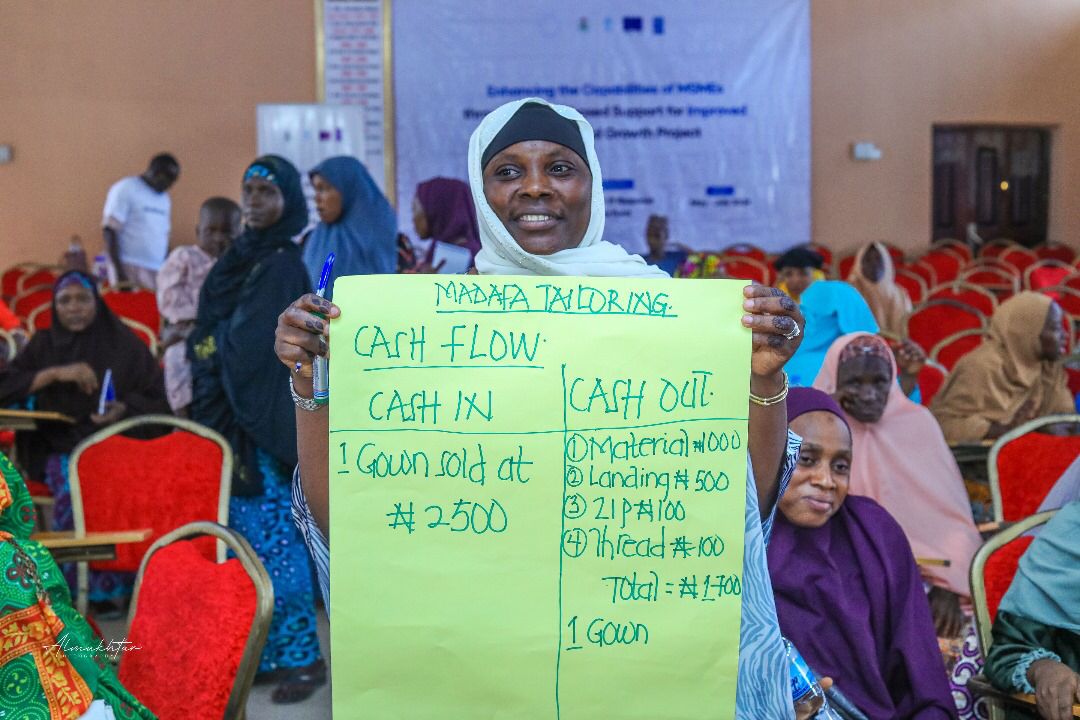 Enhancing the Capabilities of MSMEs
Support for Improved
Growth Project
MADAFA TAILORING.
CASH FLOW.
CASH IN
CASH OUT.
1 Gown sold at
₦2500
① Material ₦1000
② Landing ₦500
③ ZIP ₦100
④ Thread ₦100
Total = ₦1700
1 Gown
Almukhtar